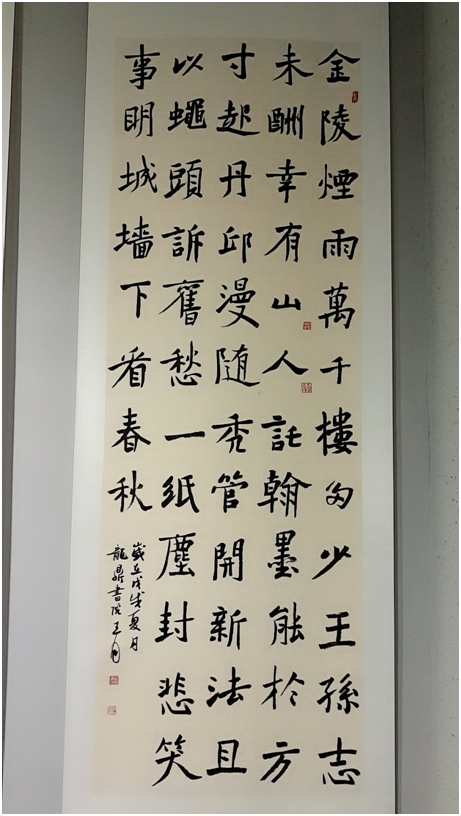 金陵煙雨萬千樓多少王孫志
未酬幸有山人託翰墨能於方
寸起丹邱漫随禿管開新法且
以蠅頭訴舊愁一紙塵封悲笑
事明城墻下看春秋
歲在戊戌夏月
龍鼎書院王